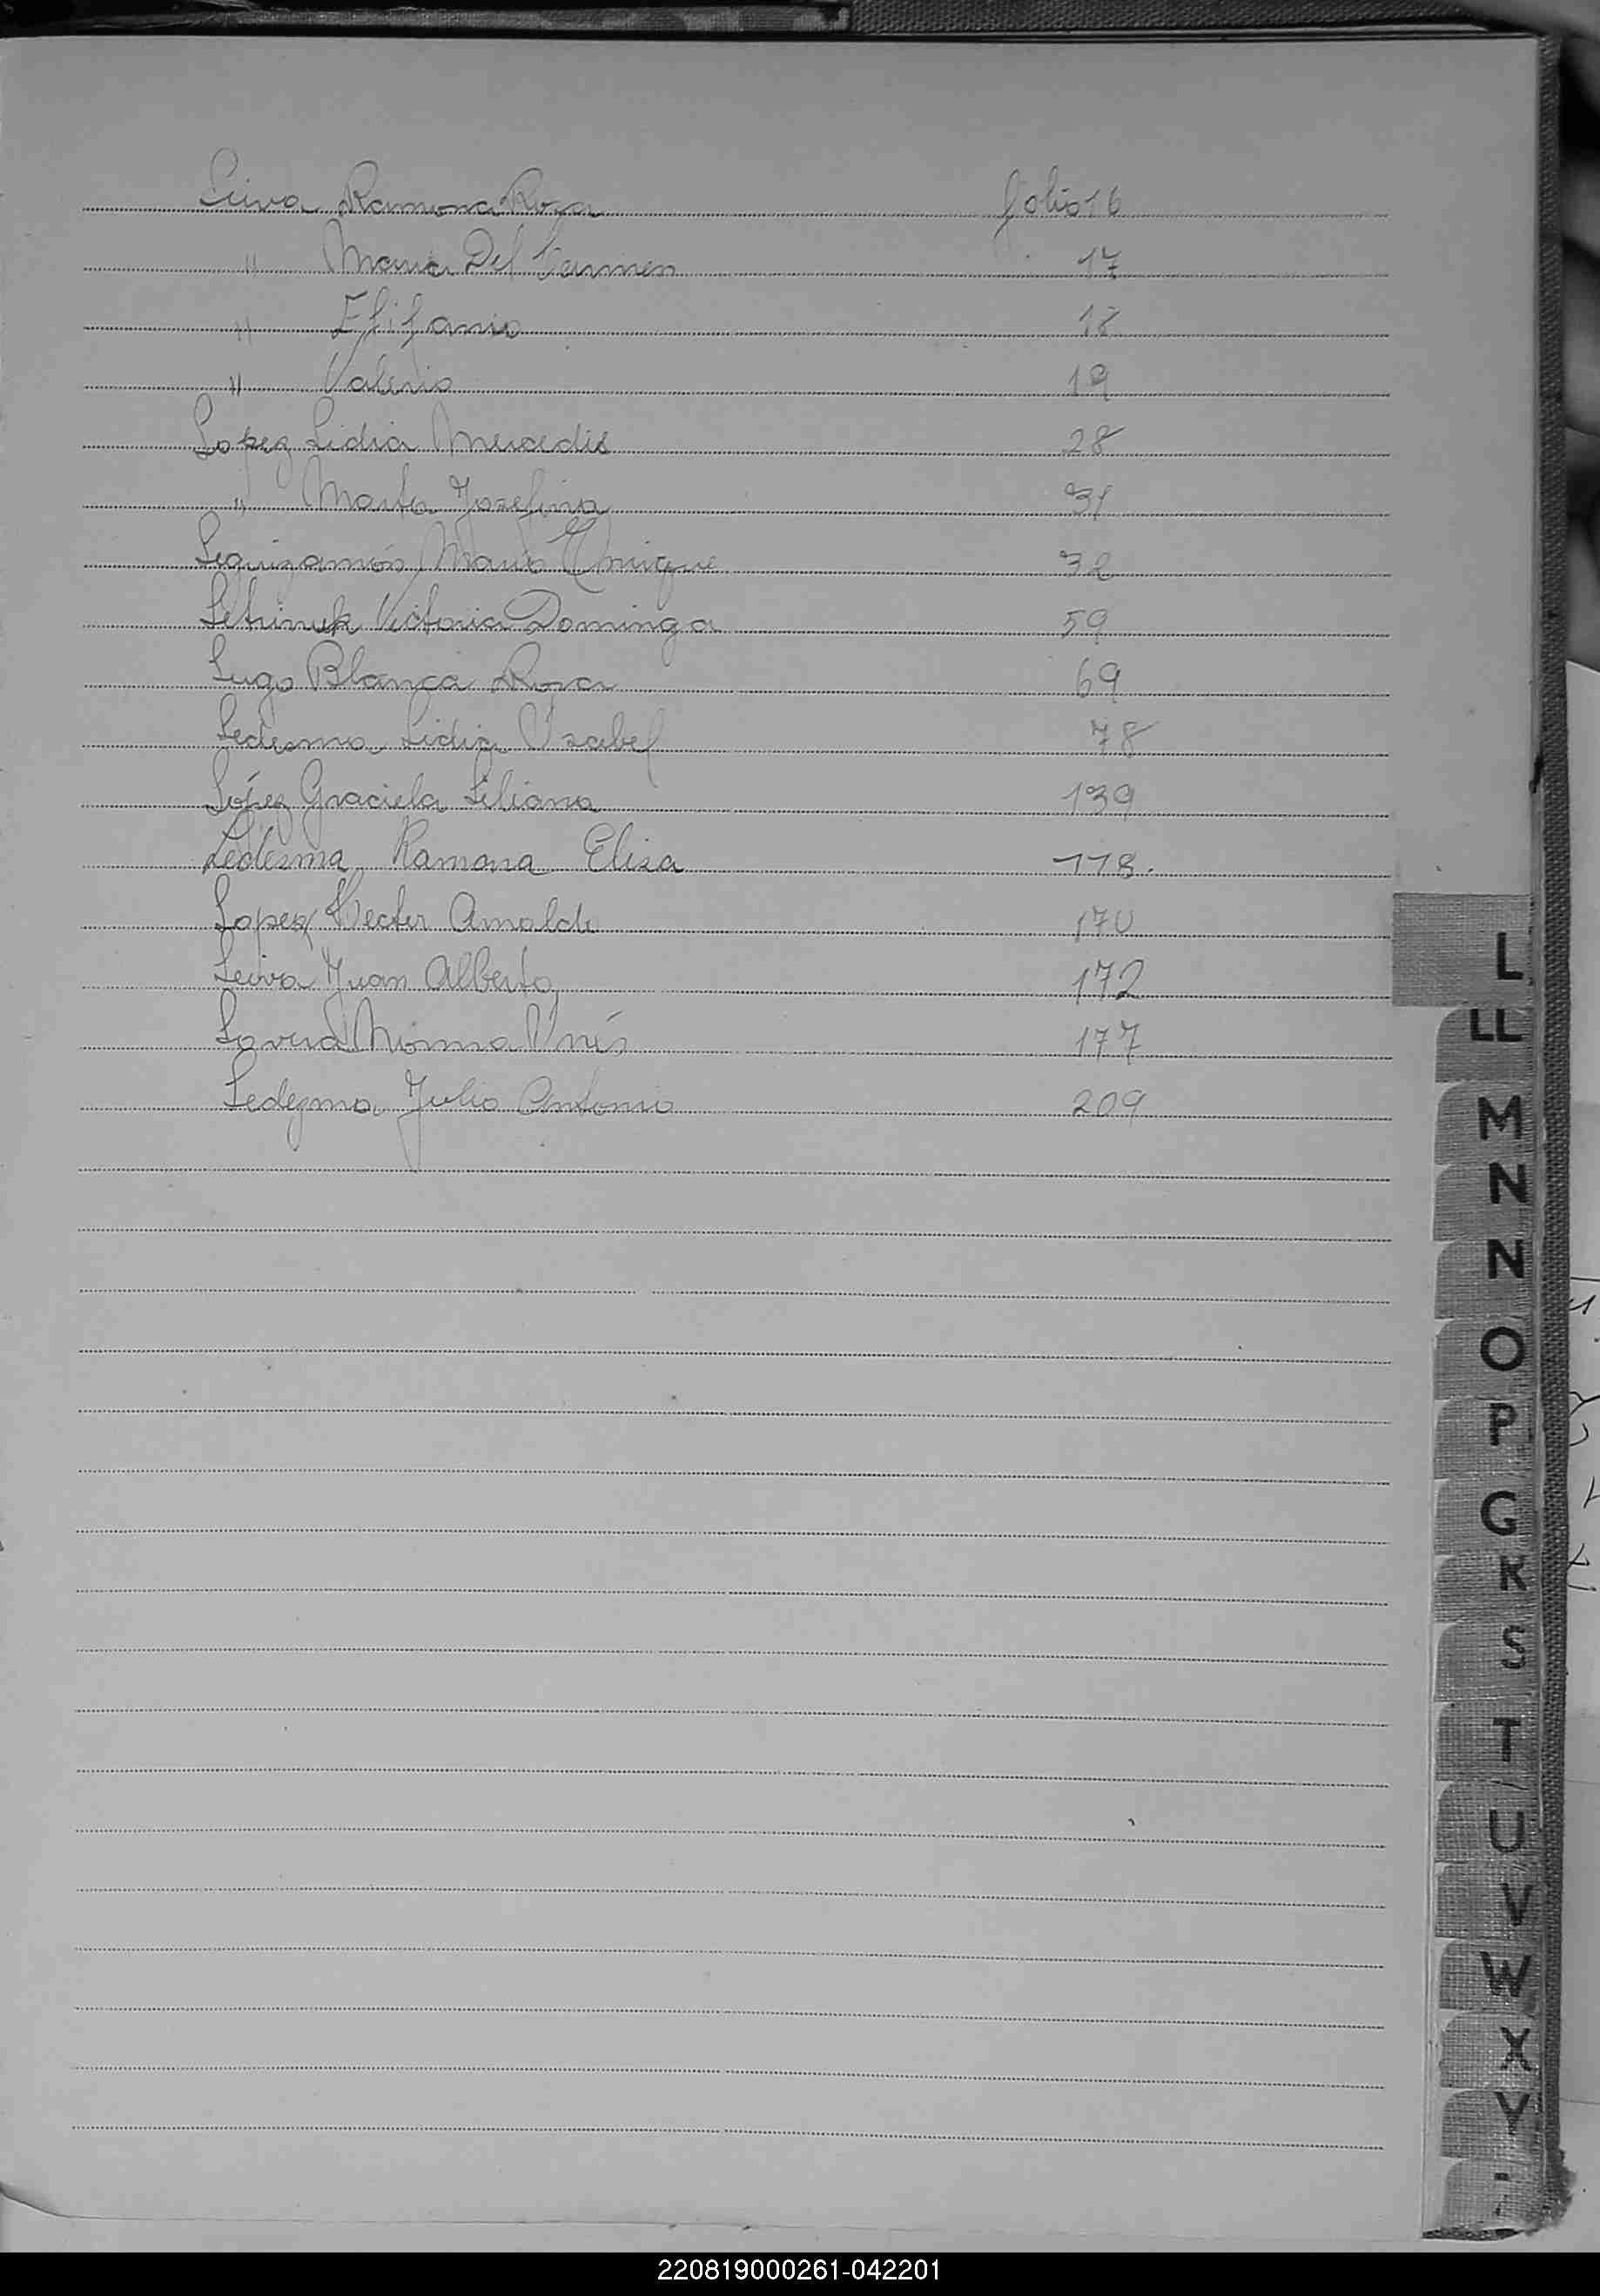 Leiva Ramona Rosa folio 16
" Maria Del Carmen 17
" Efifanio 18
" Valerio 19
Lopez Lidia Mercedes 28
" Marta Josefina 31
Leguizamón Mario Enrique 32
Letrinuk Victoria Dominga 59
Lugo Blanca Rosa 69
Ledesma Lidia Isabel 78
López Graciela Liliana 139
Ledesma Ramona Elisa 118.
Lopez Hector Arnaldo 170
Leiva Juan Alberto 172
Lovera Norma Inés 177
Ledezma Julio Antonio 209
L
LL
M
N
N
O
P
G
R
S
T
U
V
W
X
Y
220819000261-042201